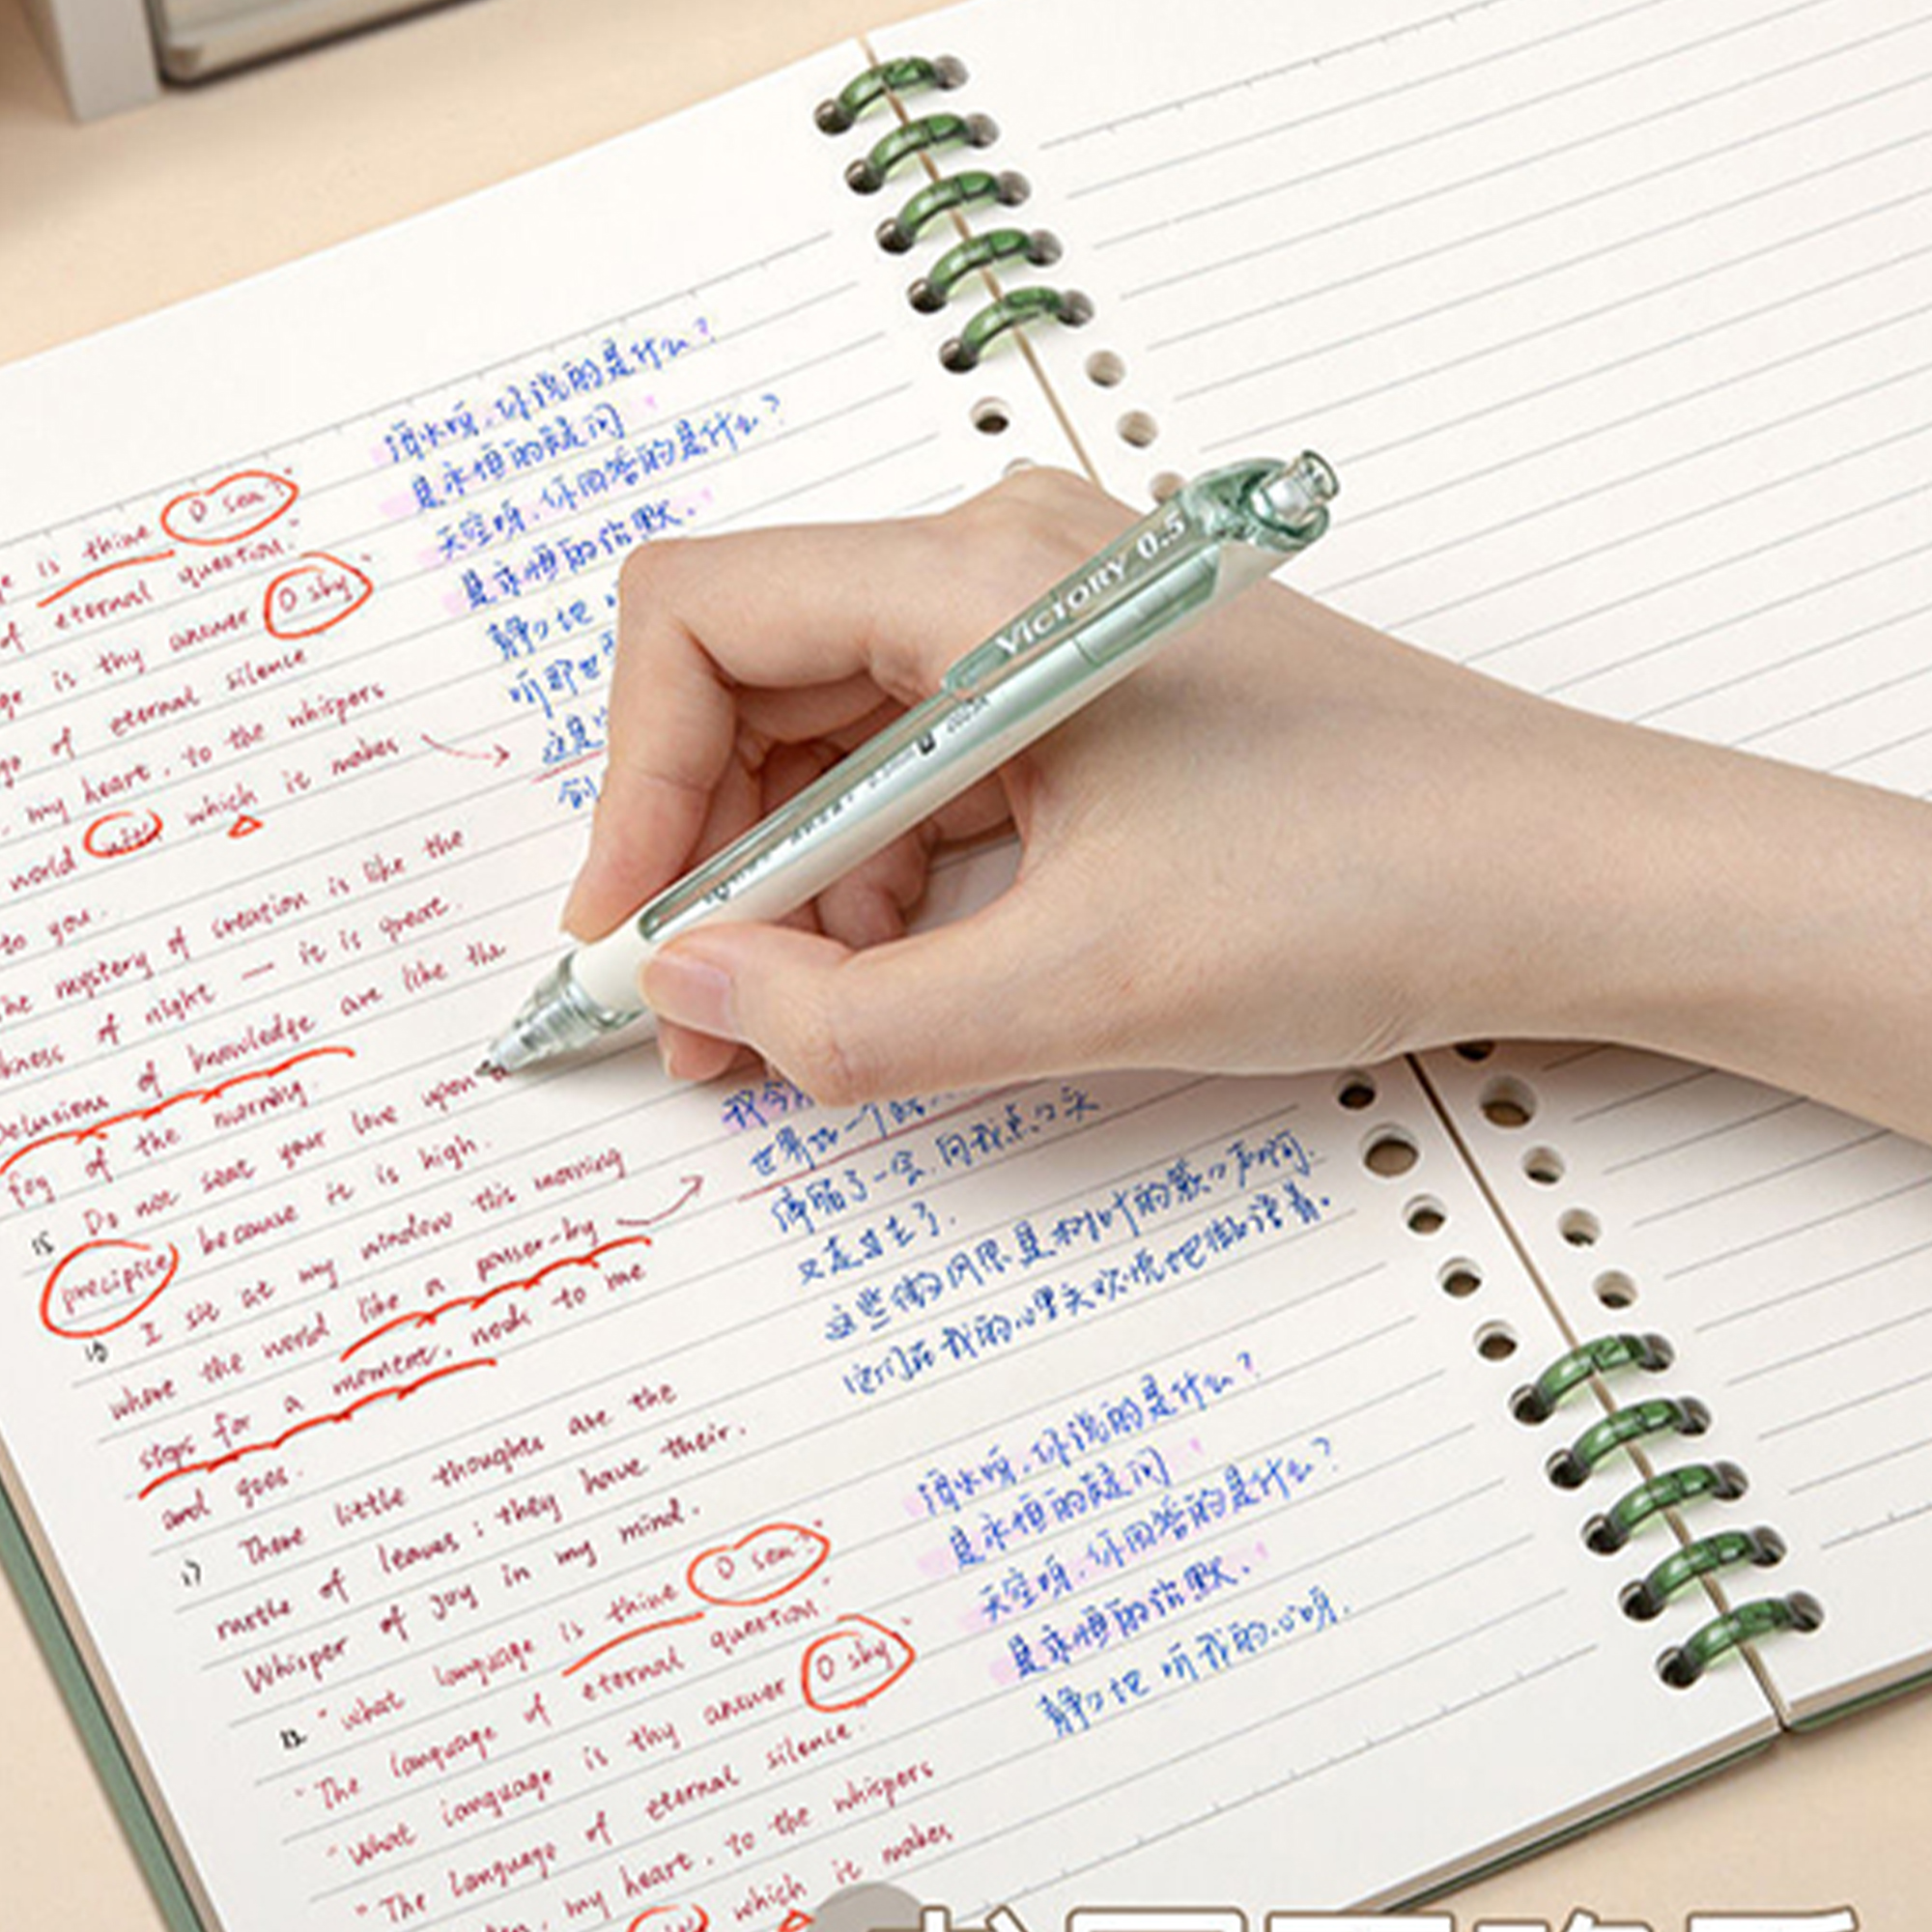 is thine O sea?
of eternal question."
is thy answer O sky
of eternal silence
my heart, to the whispers
world with which it makes
to you.
mystery of creation is like the
of night — it is great.
Delusions of knowledge are like the
fog of the morning.
15 Do not seat your love upon
precipice because it is high.
16 I sit at my window this morning
where the world like a passer-by
stops for a moment, nods to me
and goes.
17 There little thoughts are the
rustle of leaves; they have their.
Whisper of joy in my mind.
18 "what language is thine O sea?
"The language of eternal question."
"What language is thy answer O sky
"The language of eternal silence."
my heart, to the whispers
which it makes
海水呀,你说的是什么?
是永恒的疑问
天空呀,你回答的是什么?
是永恒的沉默.
静静地
听那世
这是
创
我今
世界如一个路
停留了一会,向我点点头
又走过去了.
这些微的思是树叶的簌簌声啊.
它们在我的心里欢悦地微语着.
海水呀,你说的是什么?
是永恒的疑问
天空呀,你回答的是什么?
是永恒的沉默.
静静地 听我的心呀.
VICTORY 0.5